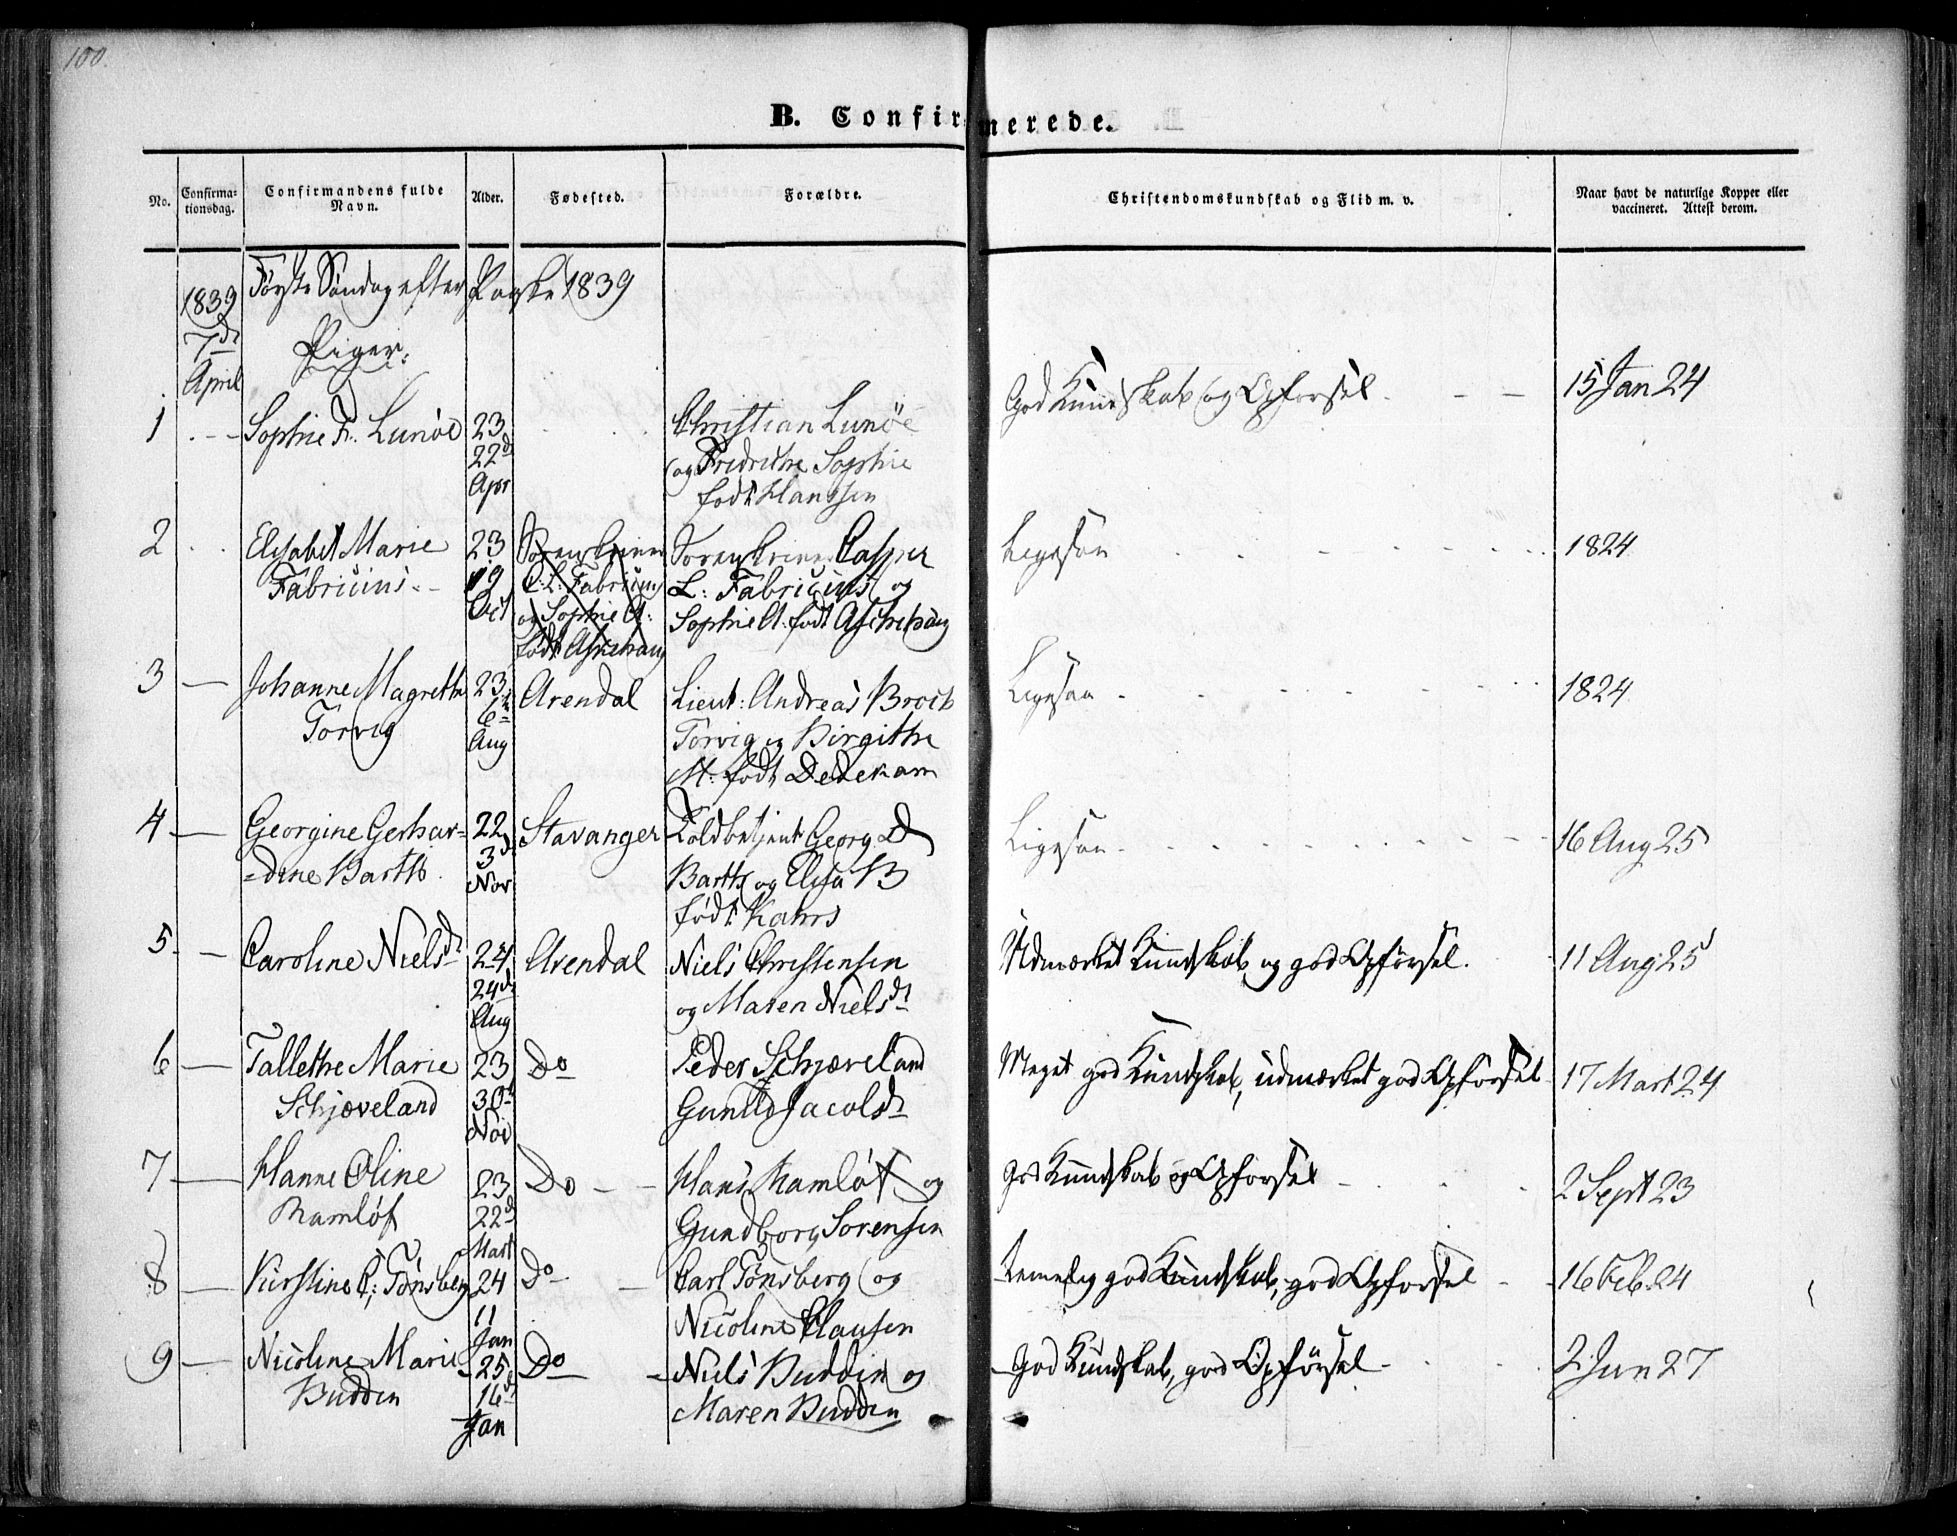 100.
B. Confirmerede.
No.
Confirma-
tionsdag.
Confirmandens fulde
Navn.
Alder.
Fødested.
Forældre.
Christendomskundskab og Flid m. v.
Naar havt de naturlige Kopper eller
vaccineret. Attest derom.
1839
7de
April
Første Søndag efter Paaske 1839
Piger.
1 Sophie Fr. Lunöe
23
22d
Apr
Christian Lunöe
og Fredrikke Sophie
født Hanssen
God Kundskab og Opførsel
15 Jan 24
2
Elisabet Marie
Fabricius
23
19
Oct
C. L. Fabricius
og Sophie A:
født Aschehaug
Casper
L: Fabricius og
Sophie A. født Aschehaug
Ligesaa
1824
3
Johanne Magrethe
Torvig
23
6te
Aug
Arendal
Lieut: Andreas Broch
Torvig og Birgithe
M. født Dedekam
Ligesaa
1824
4
Georgine Gerhar-
-dine Barth
22
3d
Nov
Stavanger
Toldbetjent Georg D
Barth og Elisa B
født Kahrs
Ligesaa
16 Aug 25
5
Caroline Nielsdt
24
24d
Aug
Arendal
Niels Christensen
og Maren Nielsdt
Udmærket Kundskab og god Opførsel.
11 Aug 25
6
Tallethe Marie
Schjæveland
23
30t
Nov
Do
Peder Schjæveland
Gunild Jacobsdt
Meget god Kundskab, udmærket god Opførsel
17 Mart 24
7
Hanne Oline
Ramløf
23
22d
Mart
Do
Hans Ramløf og
Gundborg Sorensen
God Kundskab og Opførsel
2 Sept 23
8
Kirstine C; Tönsberg
24
11
Jan
Do
Carl Tönsberg og
Nicoline Clausen
temelig god Kundskab, god Opførsel
16 Feb. 24
9
Nicoline Marie
Buddin
25
16d
Jan
Do
Niels Buddin og
Maren Buddin
God Kundskab, god Opførsel
2 Jun 27